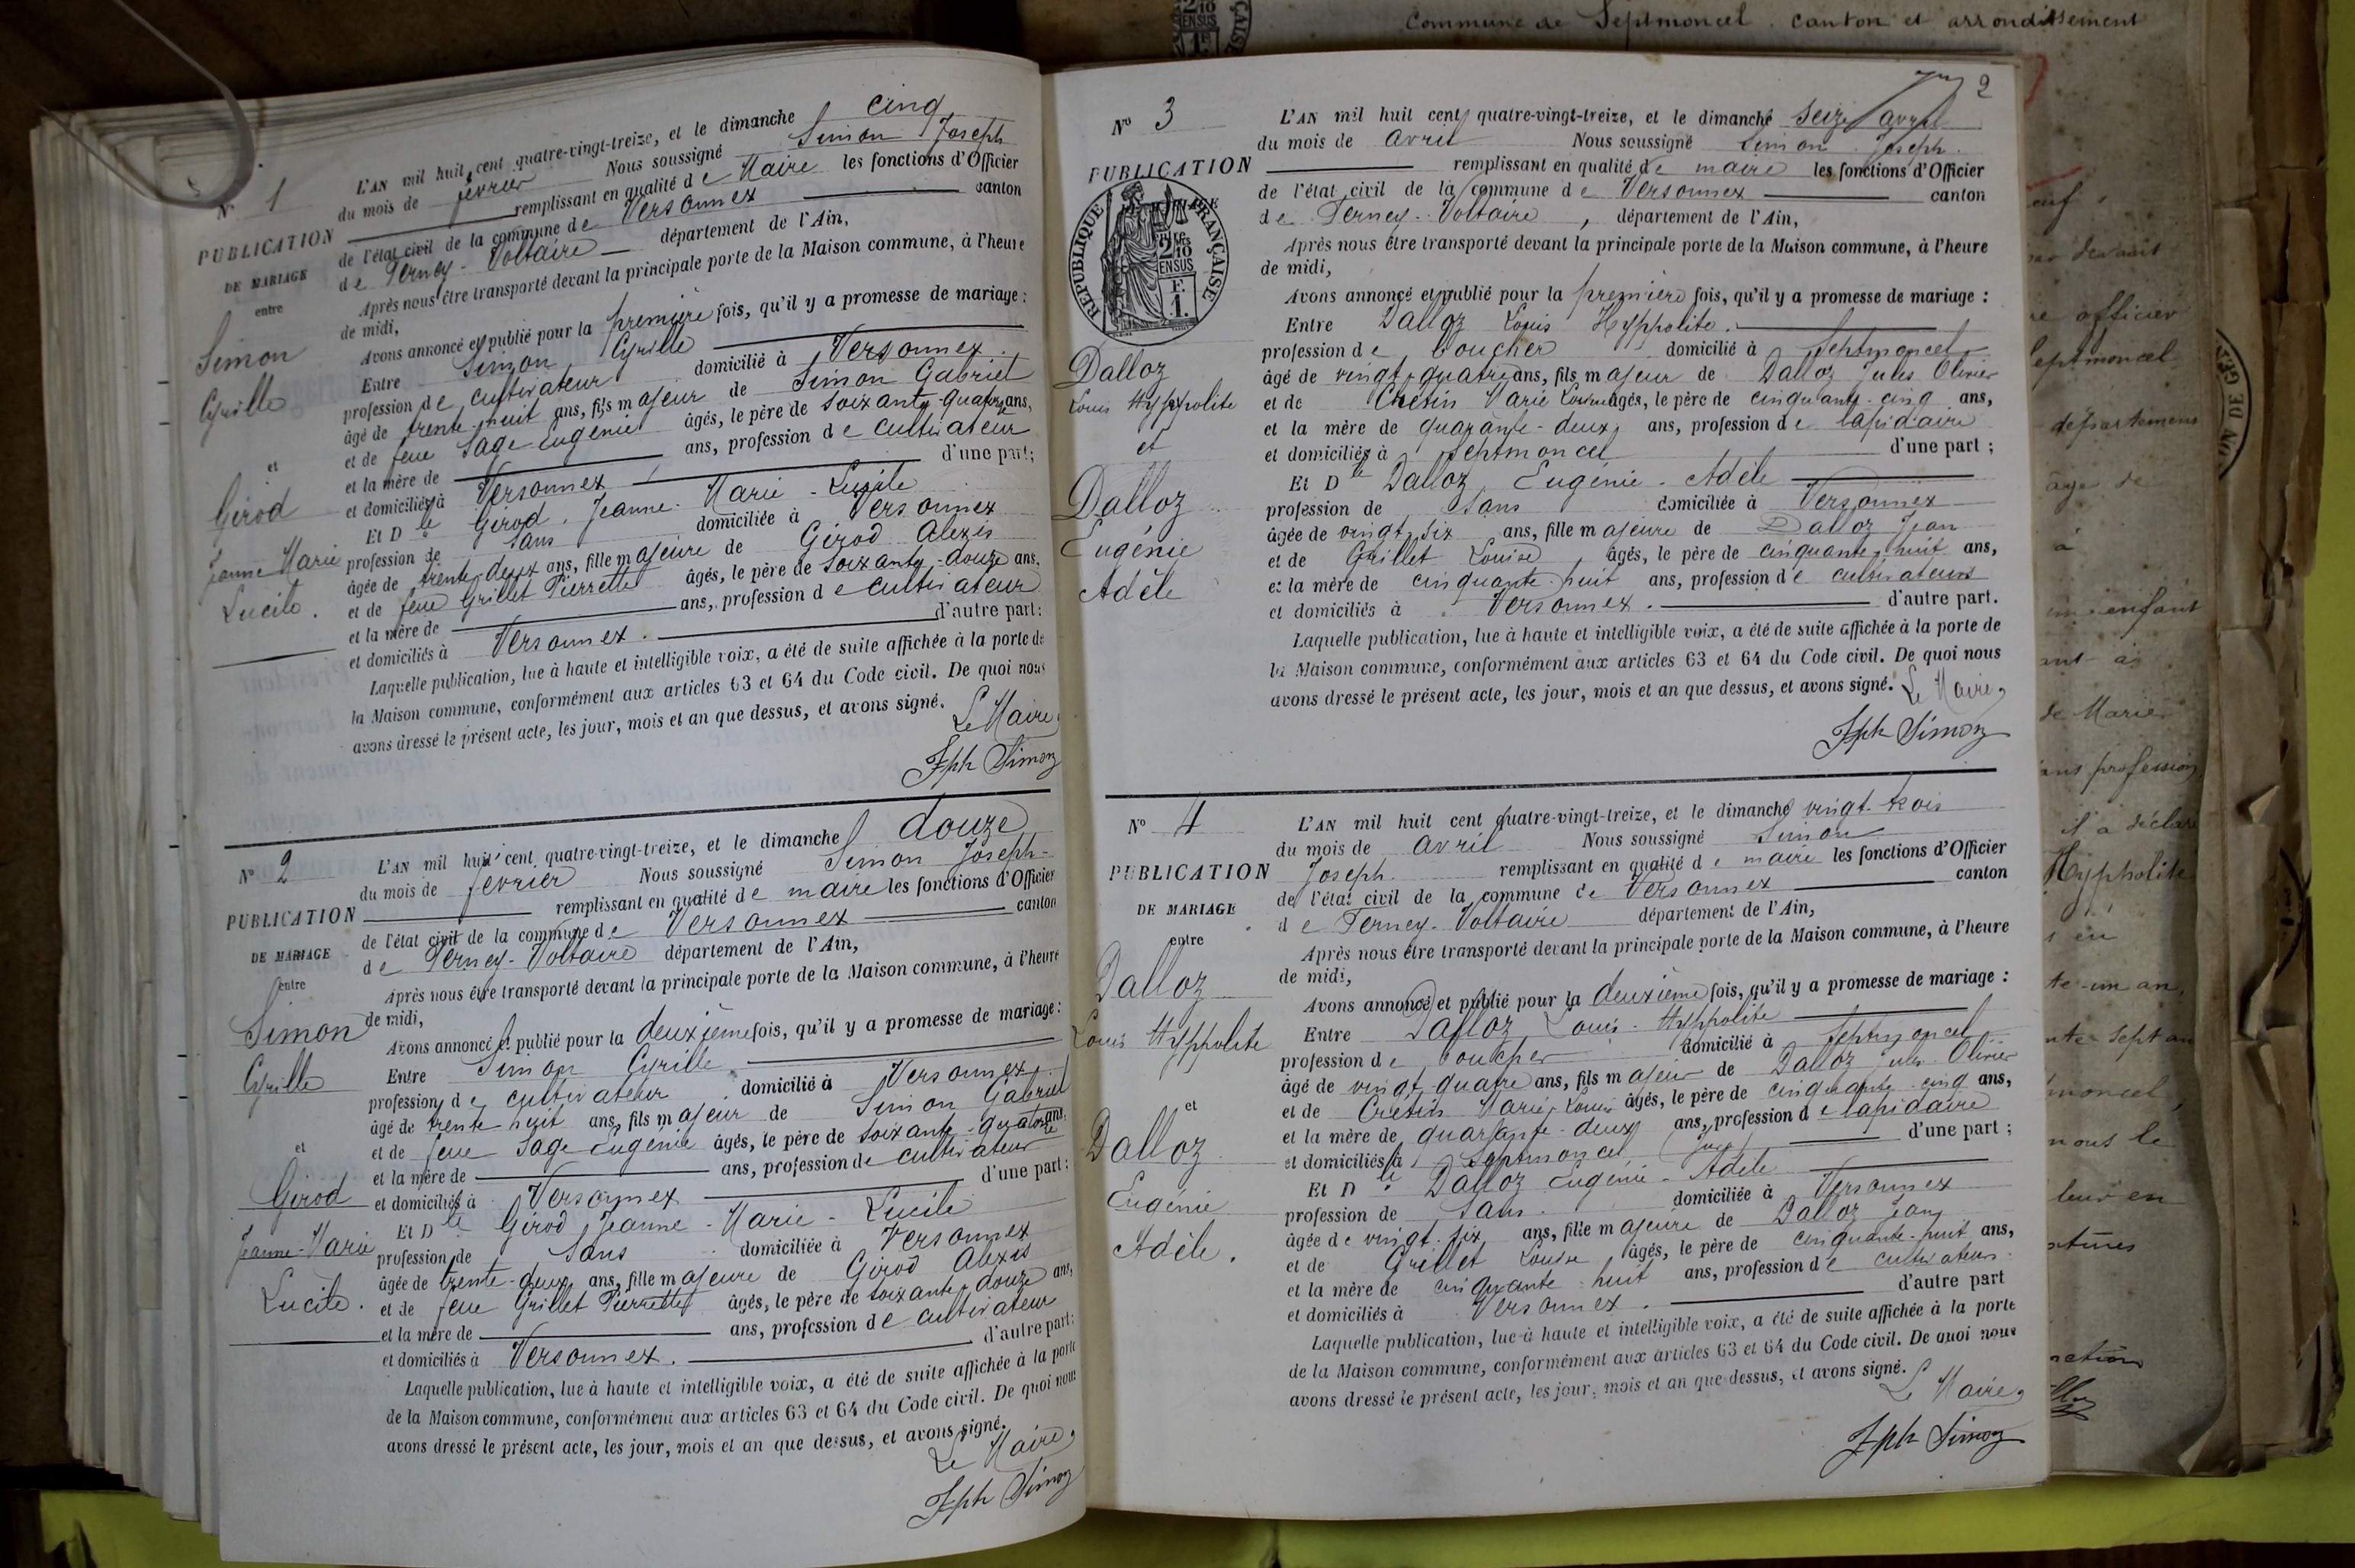 N° 1
PUBLICATION
DE MARIAGE
entre
Simon
Cyrille
et
Girod
Jeanne Marie
Lucile.
L'AN mil huit cent quatre-vingt-treize, et le dimanche cinq
du mois de février Nous soussigné Simon Joseph
remplissant en qualité de Maire les fonctions d'Officier
de l'état civil de la commune de Versonnex canton
de Ferney-Voltaire département de l'Ain,
Après nous être transporté devant la principale porte de la Maison commune, à l'heure
de midi,
Avons annoncé et publié pour la première fois, qu'il y a promesse de mariage :
Entre Simon Cyrille
profession de cultivateur domicilié à Versonnex.
âgé de trente-huit ans, fils majeur de Simon Gabriel
et de feue Sage Eugénie âgés, le père de soixante-quatorze ans,
et la mère de ans, profession de cultivateur
et domiciliés à Versonnex d'une part;
Et Dlle Girod Jeanne-Marie-Lucile
profession de Sans domiciliée à Versonnex
âgée de trente-deux ans, fille majeure de Girod Alexis
et de feue Grillet Pierrette âgés, le père de soixante-douze ans,
et la mère de ans, profession de cultivateur
et domiciliés à Versonnex. d'autre part:
Laquelle publication, lue à haute et intelligible voix, a été de suite affichée à la porte de
la Maison commune, conformément aux articles 63 et 64 du Code civil. De quoi nous
avons dressé le présent acte, les jour, mois et an que dessus, et avons signé.
Le Maire,
Jph Simon
N° 2
PUBLICATION
DE MARIAGE
entre
Simon
Cyrille
et
Girod
Jeanne-Marie
Lucile.
L'AN mil huit cent quatre-vingt-treize, et le dimanche douze
du mois de février Nous soussigné Simon Joseph-
remplissant en qualité de maire les fonctions d'Officier
de l'état civil de la commune de Versonnex canton
de Ferney-Voltaire département de l'Ain,
Après nous être transporté devant la principale porte de la Maison commune, à l'heure
de midi,
Avons annoncé et publié pour la deuxième fois, qu'il y a promesse de mariage:
Entre Simon Cyrille
profession de cultivateur domicilié à Versonnex.
âgé de trente huit ans, fils majeur de Simon Gabriel
et de feue Sage Eugénie âgés, le père de soixante-quatorze ans,
et la mère de ans, profession de cultivateur
et domiciliés à Versonnex d'une part;
Et Dlle Girod Jeanne-Marie-Lucile
profession de Sans domiciliée à Versonnex
âgée de trente-deux ans, fille majeure de Girod Alexis
et de feue Grillet Pierrette âgés, le père de soixante-douze ans,
et la mère de ans, profession de cultivateur
et domiciliés à Versonnex. d'autre part:
Laquelle publication, lue à haute et intelligible voix, a été de suite affichée à la porte
de la Maison commune, conformément aux articles 63 et 64 du Code civil. De quoi nous
avons dressé le présent acte, les jour, mois et an que dessus, et avons signé.
Le Maire,
Jph Simon
Commune de Septmoncel. canton et arrondissement
2
N° 3
PUBLICATION
RÉPUBLIQUE FRANÇAISE
2/10
EN SUS
F.
1.
Dalloz
Louis Hyppolite
et
Dalloz
Eugénie
Adèle
L'AN mil huit cent quatre-vingt-treize, et le dimanche seize avril
du mois de avril Nous soussigné Simon Joseph.
remplissant en qualité de maire les fonctions d'Officier
de l'état civil de la commune de Versonnex canton
de Ferney-Voltaire, département de l'Ain,
Après nous être transporté devant la principale porte de la Maison commune, à l'heure
de midi,
Avons annoncé et publié pour la première fois, qu'il y a promesse de mariage :
Entre Dalloz Louis Hyppolite.
profession de boucher domicilié à Septmoncel
âgé de vingt-quatre ans, fils majeur de Dalloz Jules Olivier
et de Cretin Marie Louise âgés, le père de cinquante-cinq ans,
et la mère de quarante-deux ans, profession de lapidaire
et domiciliés à Septmoncel d'une part ;
Et Dlle Dalloz Eugénie-Adèle
profession de Sans domiciliée à Versonnex
âgée de vingt six ans, fille majeure de Dalloz Jean
et de Grillet Louise, âgés, le père de cinquante-huit ans,
et la mère de cinquante-huit ans, profession de cultivateurs
et domiciliés à Versonnex. d'autre part.
Laquelle publication, lue à haute et intelligible voix, a été de suite affichée à la porte de
la Maison commune, conformément aux articles 63 et 64 du Code civil. De quoi nous
avons dressé le présent acte, les jour, mois et an que dessus, et avons signé. Le Maire,
Jph Simon
N° 4
PUBLICATION
DE MARIAGE
entre
Dalloz
Louis Hyppolite
et
Dalloz
Eugénie
Adèle.
L'AN mil huit cent quatre-vingt-treize, et le dimanche vingt-trois
du mois de avril Nous soussigné Simon
Joseph. remplissant en qualité de maire les fonctions d'Officier
de l'état civil de la commune de Versonnex canton
de Ferney-Voltaire département de l'Ain,
Après nous être transporté devant la principale porte de la Maison commune, à l'heure
de midi,
Avons annoncé et publié pour la deuxième fois, qu'il y a promesse de mariage :
Entre Dalloz Louis-Hyppolite
profession de boucher domicilié à Septmoncel
âgé de vingt-quatre ans, fils majeur de Dalloz Jules Olivier
et de Cretin Marie Louise âgés, le père de cinquante-cinq ans,
et la mère de quarante-deux ans, profession de lapidaire
et domiciliés à Septmoncel (Jura) d'une part ;
Et Dlle Dalloz Eugénie-Adèle
profession de Sans. domiciliée à Versonnex
âgée de vingt-six ans, fille majeure de Dalloz Jean
et de Grillet Louise, âgés, le père de cinquante-huit ans,
et la mère de cinquante-huit ans, profession de cultivateurs
et domiciliés à Versonnex. d'autre part
Laquelle publication, lue à haute et intelligible voix, a été de suite affichée à la porte
de la Maison commune, conformément aux articles 63 et 64 du Code civil. De quoi nous
avons dressé le présent acte, les jour, mois et an que dessus, et avons signé.
Le Maire,
Jph Simon
devant
officier
eptmoncel
département
âge de
à
enfant
de Marie
profession
il a déclaré
Hypholite
en
te-un an,
nte sept an
moncel,
nous le
leur en